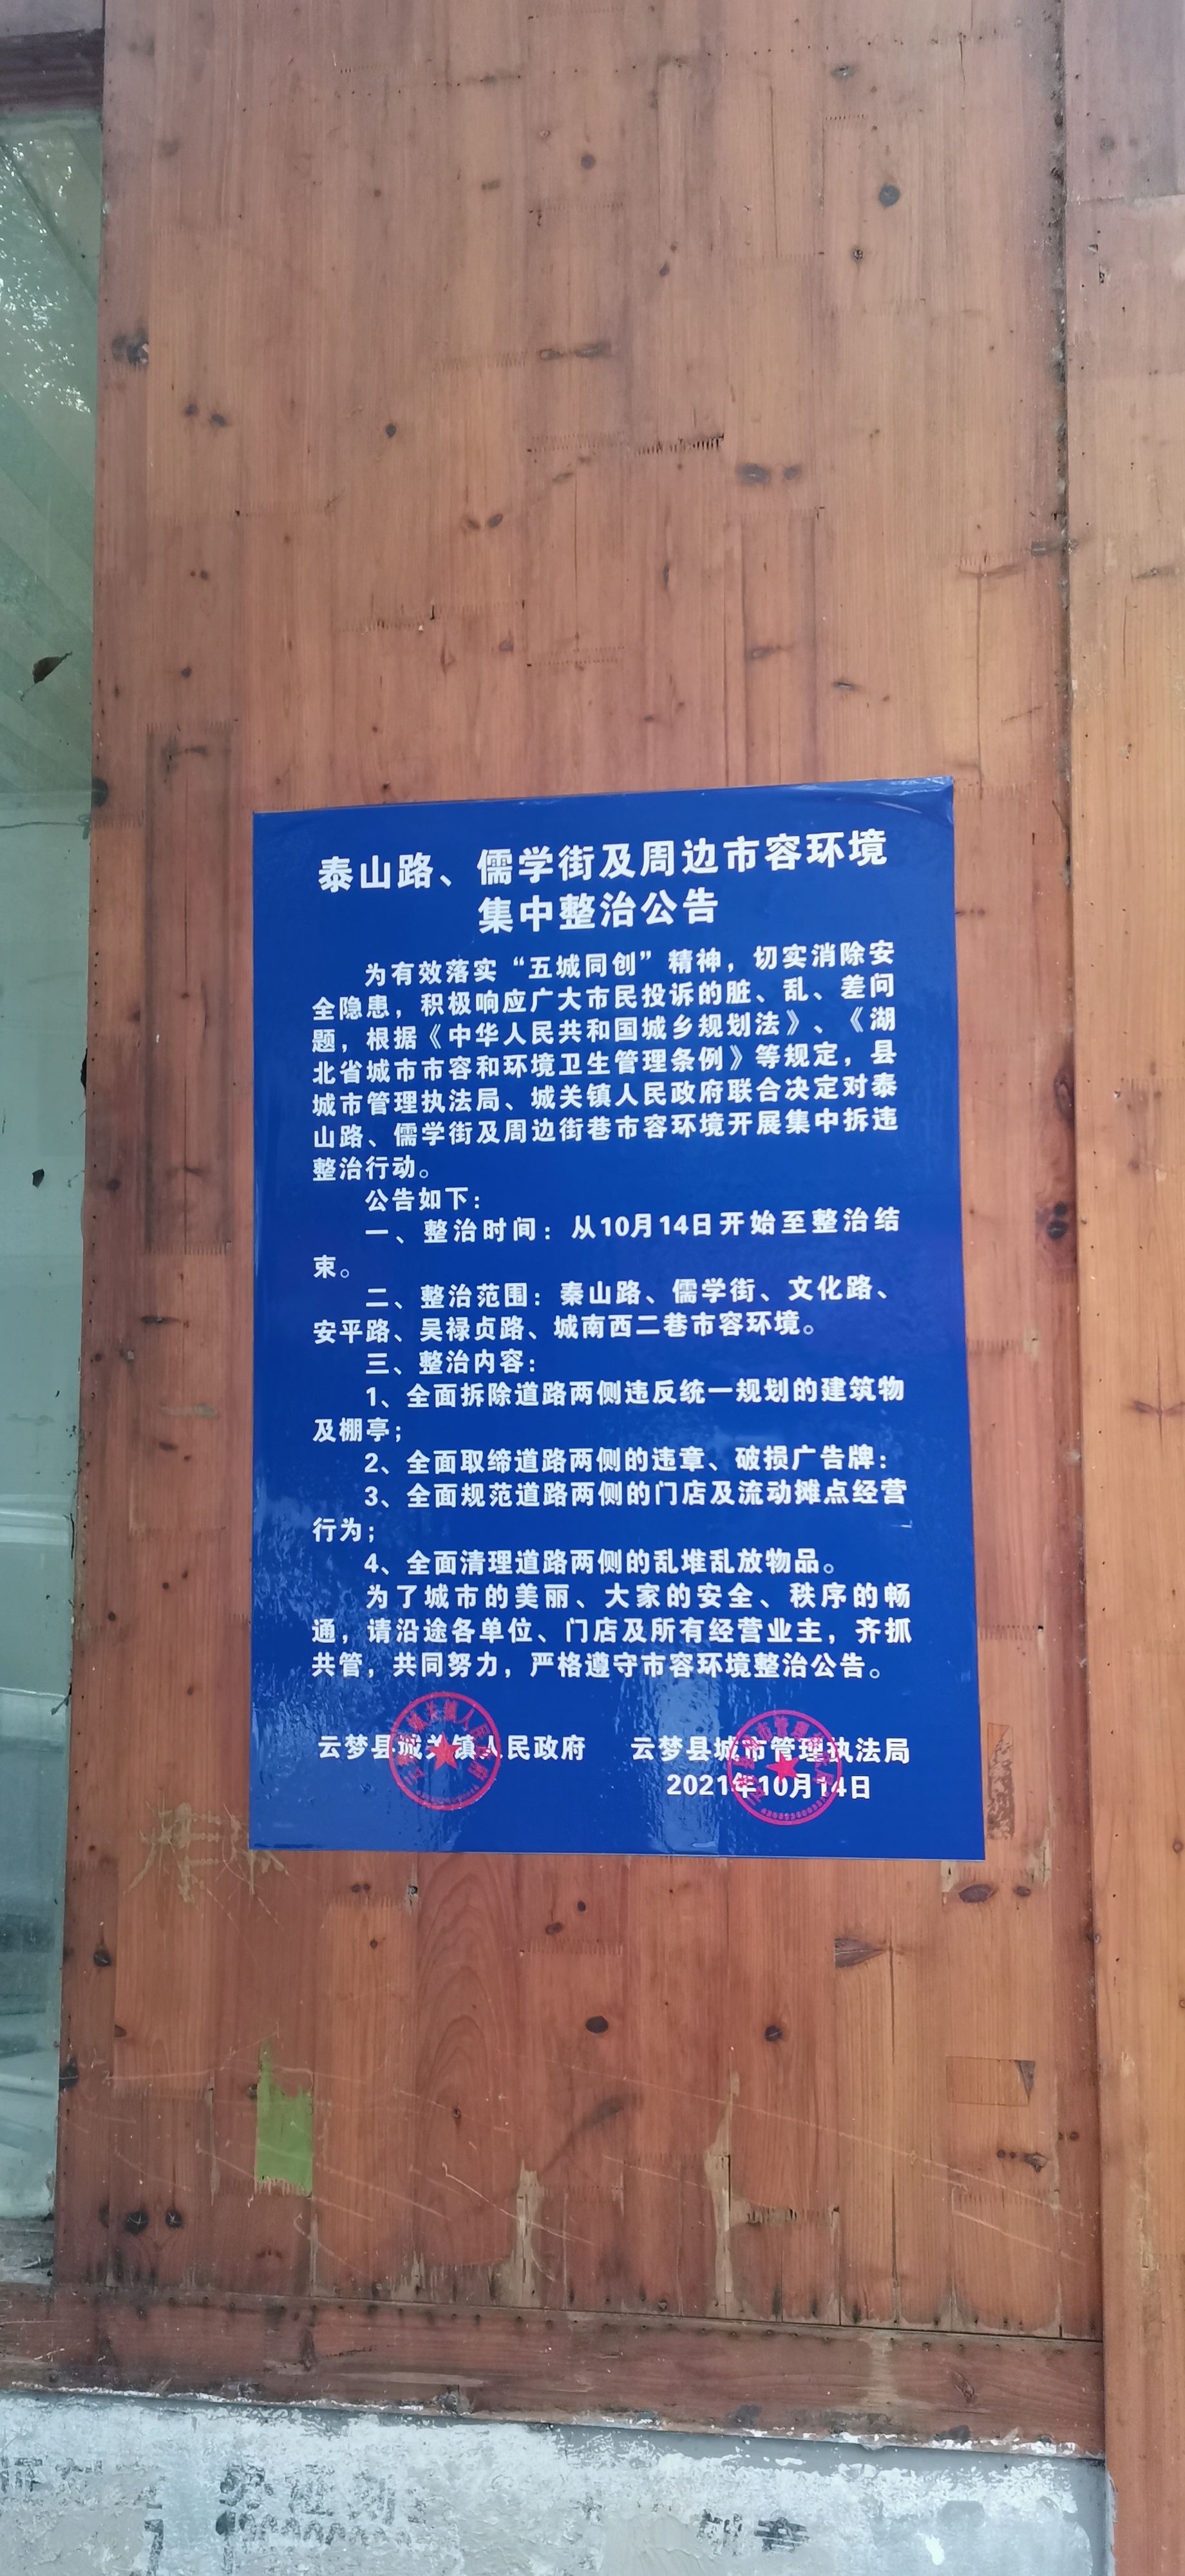 泰山路、儒学街及周边市容环境
集中整治公告
为有效落实“五城同创”精神，切实消除安
全隐患，积极响应广大市民投诉的脏、乱、差问
题，根据《中华人民共和国城乡规划法》、《湖
北省城市市容和环境卫生管理条例》等规定，县
城市管理执法局、城关镇人民政府联合决定对泰
山路、儒学街及周边街巷市容环境开展集中拆违
整治行动。
公告如下：
一、整治时间：从10月14日开始至整治结
束。
二、整治范围：泰山路、儒学街、文化路、
安平路、吴禄贞路、城南西二巷市容环境。
三、整治内容：
1、全面拆除道路两侧违反统一规划的建筑物
及棚亭；
2、全面取缔道路两侧的违章、破损广告牌：
3、全面规范道路两侧的门店及流动摊点经营
行为；
4、全面清理道路两侧的乱堆乱放物品。
为了城市的美丽、大家的安全、秩序的畅
通，请沿途各单位、门店及所有经营业主，齐抓
共管，共同努力，严格遵守市容环境整治公告。
云梦县城关镇人民政府 云梦县城市管理执法局
2021年10月14日